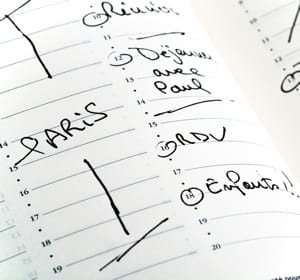 14
15
PARIS
16
17
18
19
10 Réunion
11
12 Déjeuner
avec
Paul
14
15
16 RDV
17
18 Enfants!!
19
20